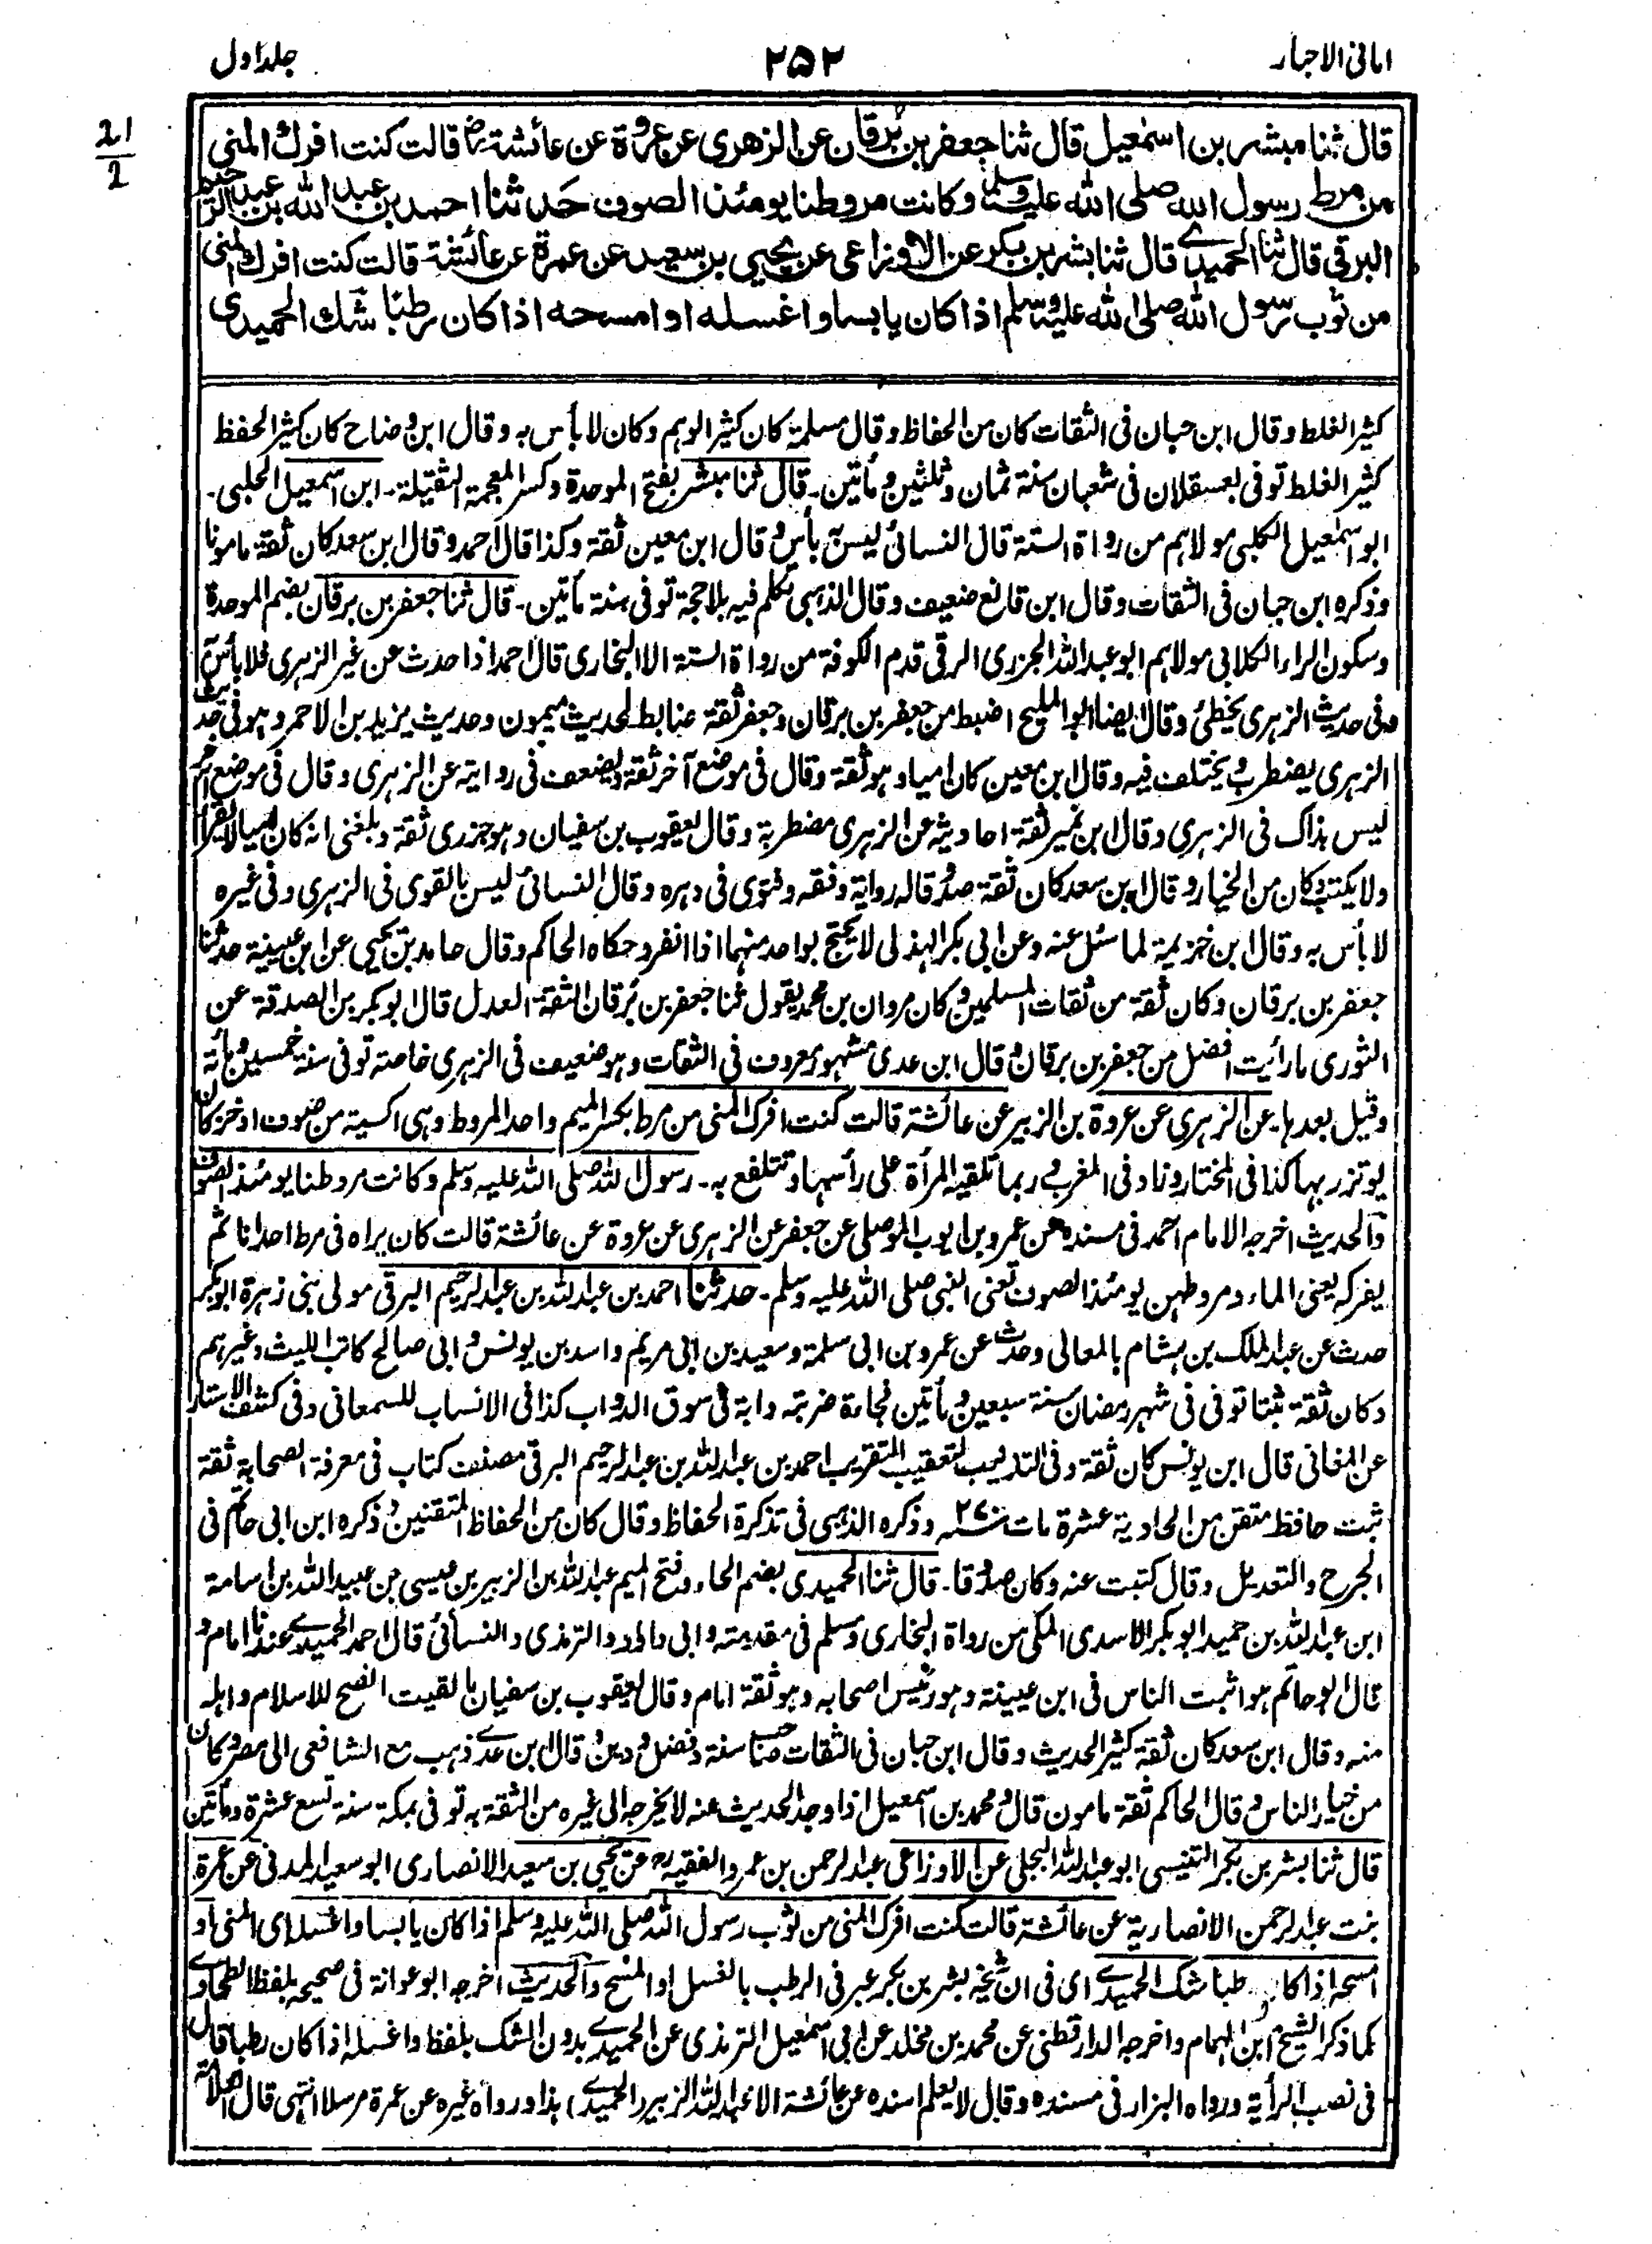 امانی الاحبار
۲۵۲
جلد اول
21
2
قال ثنا مبشر بن اسمٰعيل قال ثنا جعفر بن بُرقان عن الزهری عن عروة عن عائشة رض قالت كنت افرك المنی
من مرط رسول الله صلی الله عليه وسلم وكانت مروطنا يومئذ الصوف حدثنا احمد بن عبد الله بن عبد الرحيم
البرقی قال ثنا الحميدی قال ثنا بشر بن بكر عن الاوزاعی عن يحيی بن سعيد عن عمرة عن عائشة قالت كنت افرك المنی
من ثوب رسول الله صلی الله عليه وسلم اذا كان يابسا واغسله او امسحه اذا كان رطبا شك الحميدی
كثير الغلط وقال ابن حبان فی الثقات كان من الحفاظ وقال مسلمة كان كثير الوهم وكان لا بأس به وقال ابن وضاح كان كثير الحفظ
كثير الغلط توفی بعسقلان فی شعبان سنة ثمان وثلثين ومأتين۔ قال ثنا مبشر بفتح الموحدة وكسر المعجمة الثقيلة۔ ابن اسمعيل الحلبی۔
ابو اسمٰعيل الكلبی مولاهم من رواة الستة قال النسائی ليس به بأس وقال ابن معين ثقة وكذا قال احمد وقال ابن سعد كان ثقة مامونا
وذكره ابن حبان فی الثقات وقال ابن قانع ضعيف وقال الذهبی تكلم فيه بلا حجة توفی سنة مأتين۔ قال ثنا جعفر بن برقان بضم الموحدة
وسكون الراء الكلابی مولاهم ابو عبد الله الجزری الرقی قدم الكوفة من رواة الستة الا البخاری قال احمد اذا حدث عن غير الزهری فلا بأس به
وفی حديث الزهری يخطئ وقال ايضا ابو المليح اضبط من جعفر بن برقان وجعفر ثقة ضابط لحديث ميمون وحديث يزيد بن الاحمر وهو فی حديث
الزهری يضطرب ويختلف فيه وقال ابن معين كان اميا وهو ثقة وقال فی موضع آخر ثقة ويضعف فی روايته عن الزهری وقال فی موضع آخر
ليس بذاك فی الزهری وقال ابن نمير ثقة احاديثه عن الزهری مضطربة وقال يعقوب بن سفيان وهو جزری ثقة وبلغنی انه كان اميا لا يقرأ
ولا يكتب وكان من الخيار وقال ابن سعد كان ثقة صدوقا له رواية وفقه وفتوی فی دهره وقال النسائی ليس بالقوی فی الزهری وفی غيره
لا بأس به وقال ابن خزيمة لما سئل عنه وعن ابی بكر الهذلی لا يحتج بواحد منهما اذا انفرد حكاه الحاكم وقال حامد بن يحيی عن ابن عيينة حدثنا
جعفر بن برقان وكان ثقة من ثقات المسلمين وكان مروان بن محمد يقول ثنا جعفر بن بُرقان الثقة العدل قال ابو بكر بن الصدقة عن
الثوری ما رأيت افضل من جعفر بن برقان وقال ابن عدی مشهور معروف فی الثقات وهو ضعيف فی الزهری خاصة توفی سنة خمسين ومائة
وقيل بعدها۔ عن الزهری عن عروة بن الزبير عن عائشة قالت كنت افرك المنی من مرط بكسر الميم واحد المروط وهی اكسية من صوف او خز كان
يوتزر بها كذا فی المختار وزاد فی المغرب ربما تلقيه المرأة علی رأسها وتتلفع به۔ رسول الله صلی الله عليه وسلم وكانت مروطنا يومئذ الصوف
والحديث اخرجه الامام احمد فی مسنده عن عمرو بن ايوب الموصلی عن جعفر عن الزهری عن عروة عن عائشة قالت كان يراه فی مرط احدانا ثم
يفركه يعنی الماء ومروطهن يومئذ الصوف تعنی النبی صلی الله عليه وسلم۔ حدثنا احمد بن عبد الله بن عبد الرحيم البرقی مولی بنی زهرة ابو بكر
حدث عن عبد الملك بن هشام بالمغازی وحدث عن عمرو بن ابی سلمة وسعيد بن ابی مريم واسد بن يونس وابی صالح كاتب الليث وغيرهم
وكان ثقة ثبتا توفی فی شهر رمضان سنة سبعين ومأتين فجاءة ضربته دابة فی سوق الدواب كذا فی الانساب للسمعانی وفی كشف الاستار
عن المغانی قال ابن يونس كان ثقة وفی التذنيب لتعقيب التقريب احمد بن عبد الله بن عبد الرحيم البرقی مصنف كتاب فی معرفة الصحابة ثقة
ثبت حافظ متقن من الحادية عشرة مات سنة ۲۷۰ وذكره الذهبی فی تذكرة الحفاظ وقال كان من الحفاظ المتقنين وذكره ابن ابی حاتم فی
الجرح والتعديل وقال كتبت عنه وكان صدوقا۔ قال ثنا الحميدی بضم الحاء وفتح الميم عبد الله بن الزبير بن عيسی بن عبيد الله بن اسامة
ابن عبد الله بن حميد ابو بكر الاسدی المكی من رواة البخاری ومسلم فی مقدمته وابی داؤد والترمذی والنسائی قال احمد الحميدی عندنا امام و
قال ابو حاتم هو اثبت الناس فی ابن عيينة وهو رئيس اصحابه وهو ثقة امام وقال يعقوب بن سفيان ما لقيت انصح للاسلام واهله
منه وقال ابن سعد كان ثقة كثير الحديث وقال ابن حبان فی الثقات صاحب سنة وفضل ودين وقال ابن عدی ذهب مع الشافعی الی مصر وكان
من خيار الناس وقال الحاكم ثقة مامون قال ومحمد بن اسمعيل اذا وجد الحديث عنه لا يخرجه الی غيره من الثقة به توفی بمكة سنة تسع عشرة ومأتين
قال ثنا بشر بن بكر التنيسی ابو عبد الله البجلی عن الاوزاعی عبد الرحمن بن عمرو الفقيه رح عن يحيی بن سعيد الانصاری ابو سعيد المدنی عن عمرة
بنت عبد الرحمن الانصارية عن عائشة قالت كنت افرك المنی من ثوب رسول الله صلی الله عليه وسلم اذا كان يابسا واغسله ای المنی او
امسحه اذا كان رطبا شك الحميدی ای فی ان شيخه بشر بن بكر عبر فی الرطب بالغسل او المسح والحديث اخرجه ابو عوانة فی صحيحه بلفظ الطحاوی
كما ذكر الشيخ ابن الهمام واخرجه الدارقطنی عن محمد بن مخلد عن ابی اسمٰعيل الترمذی عن الحميدی بدون الشك بلفظ واغسله اذا كان رطبا قال
فی نصب الرأية ورواه البزار فی مسنده وقال لا يعلم اسنده عن عائشة الا عبد الله الزبير (الحميدی) هذا ورواه غيره عن عمرة مرسلا انتهی قال